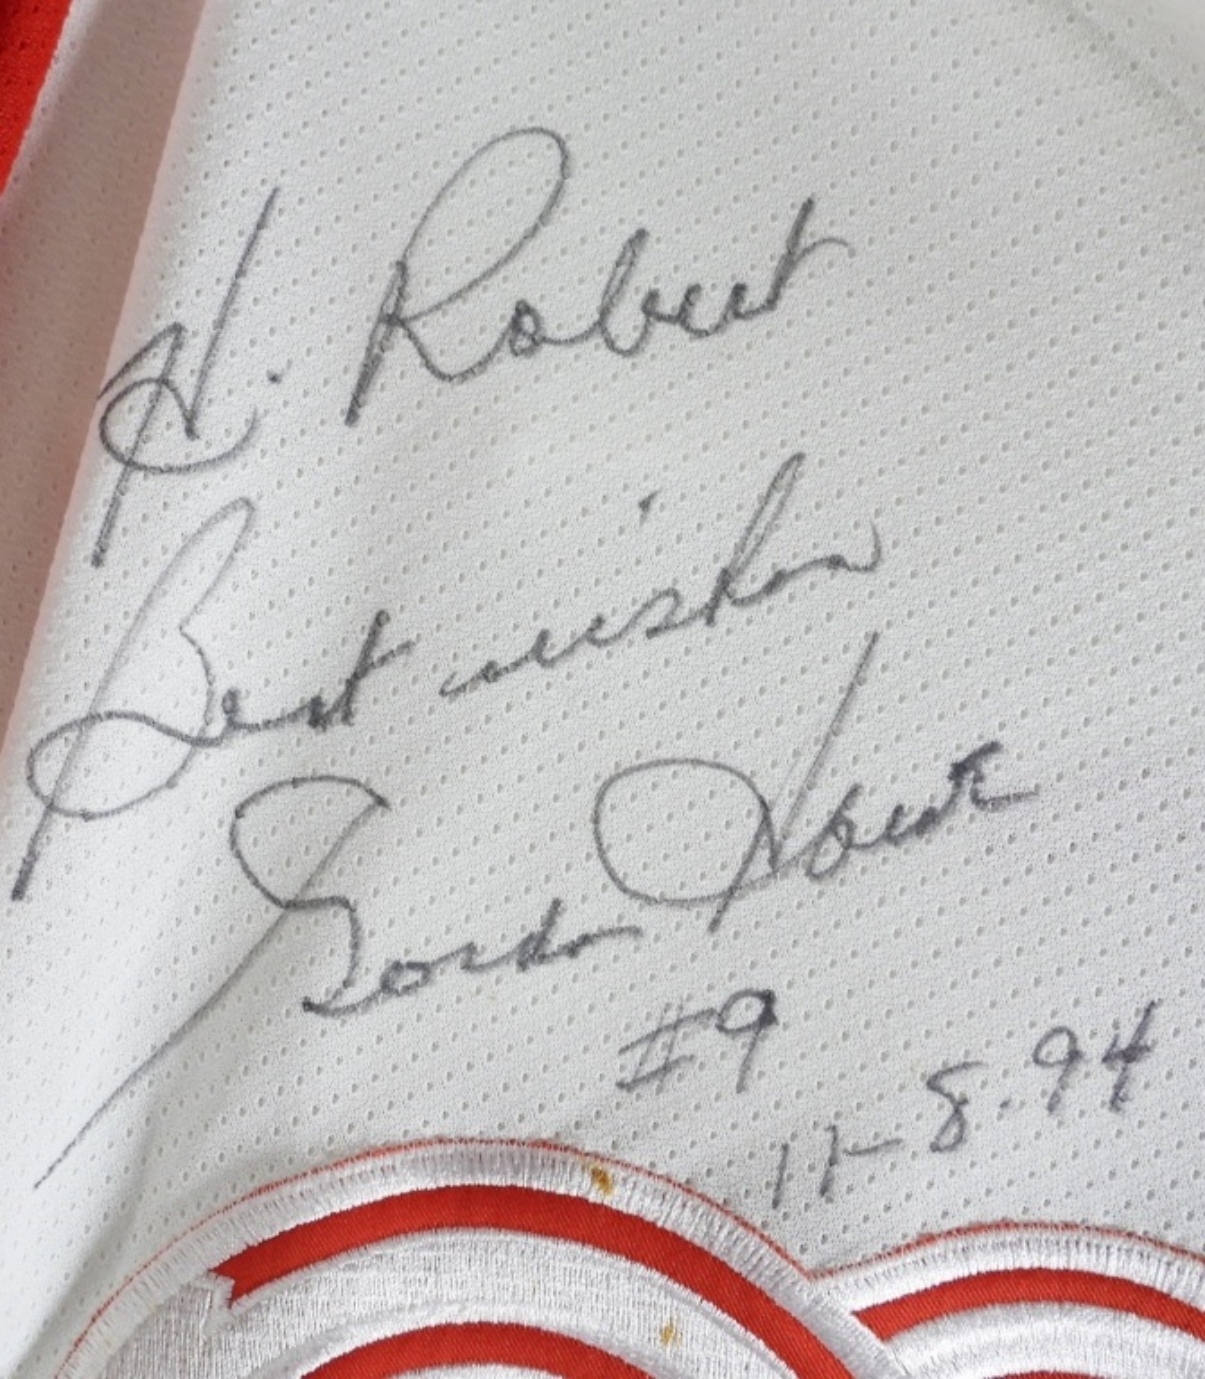 H. Robert
Best wishes
Gordie Howe
#9
11-8-94